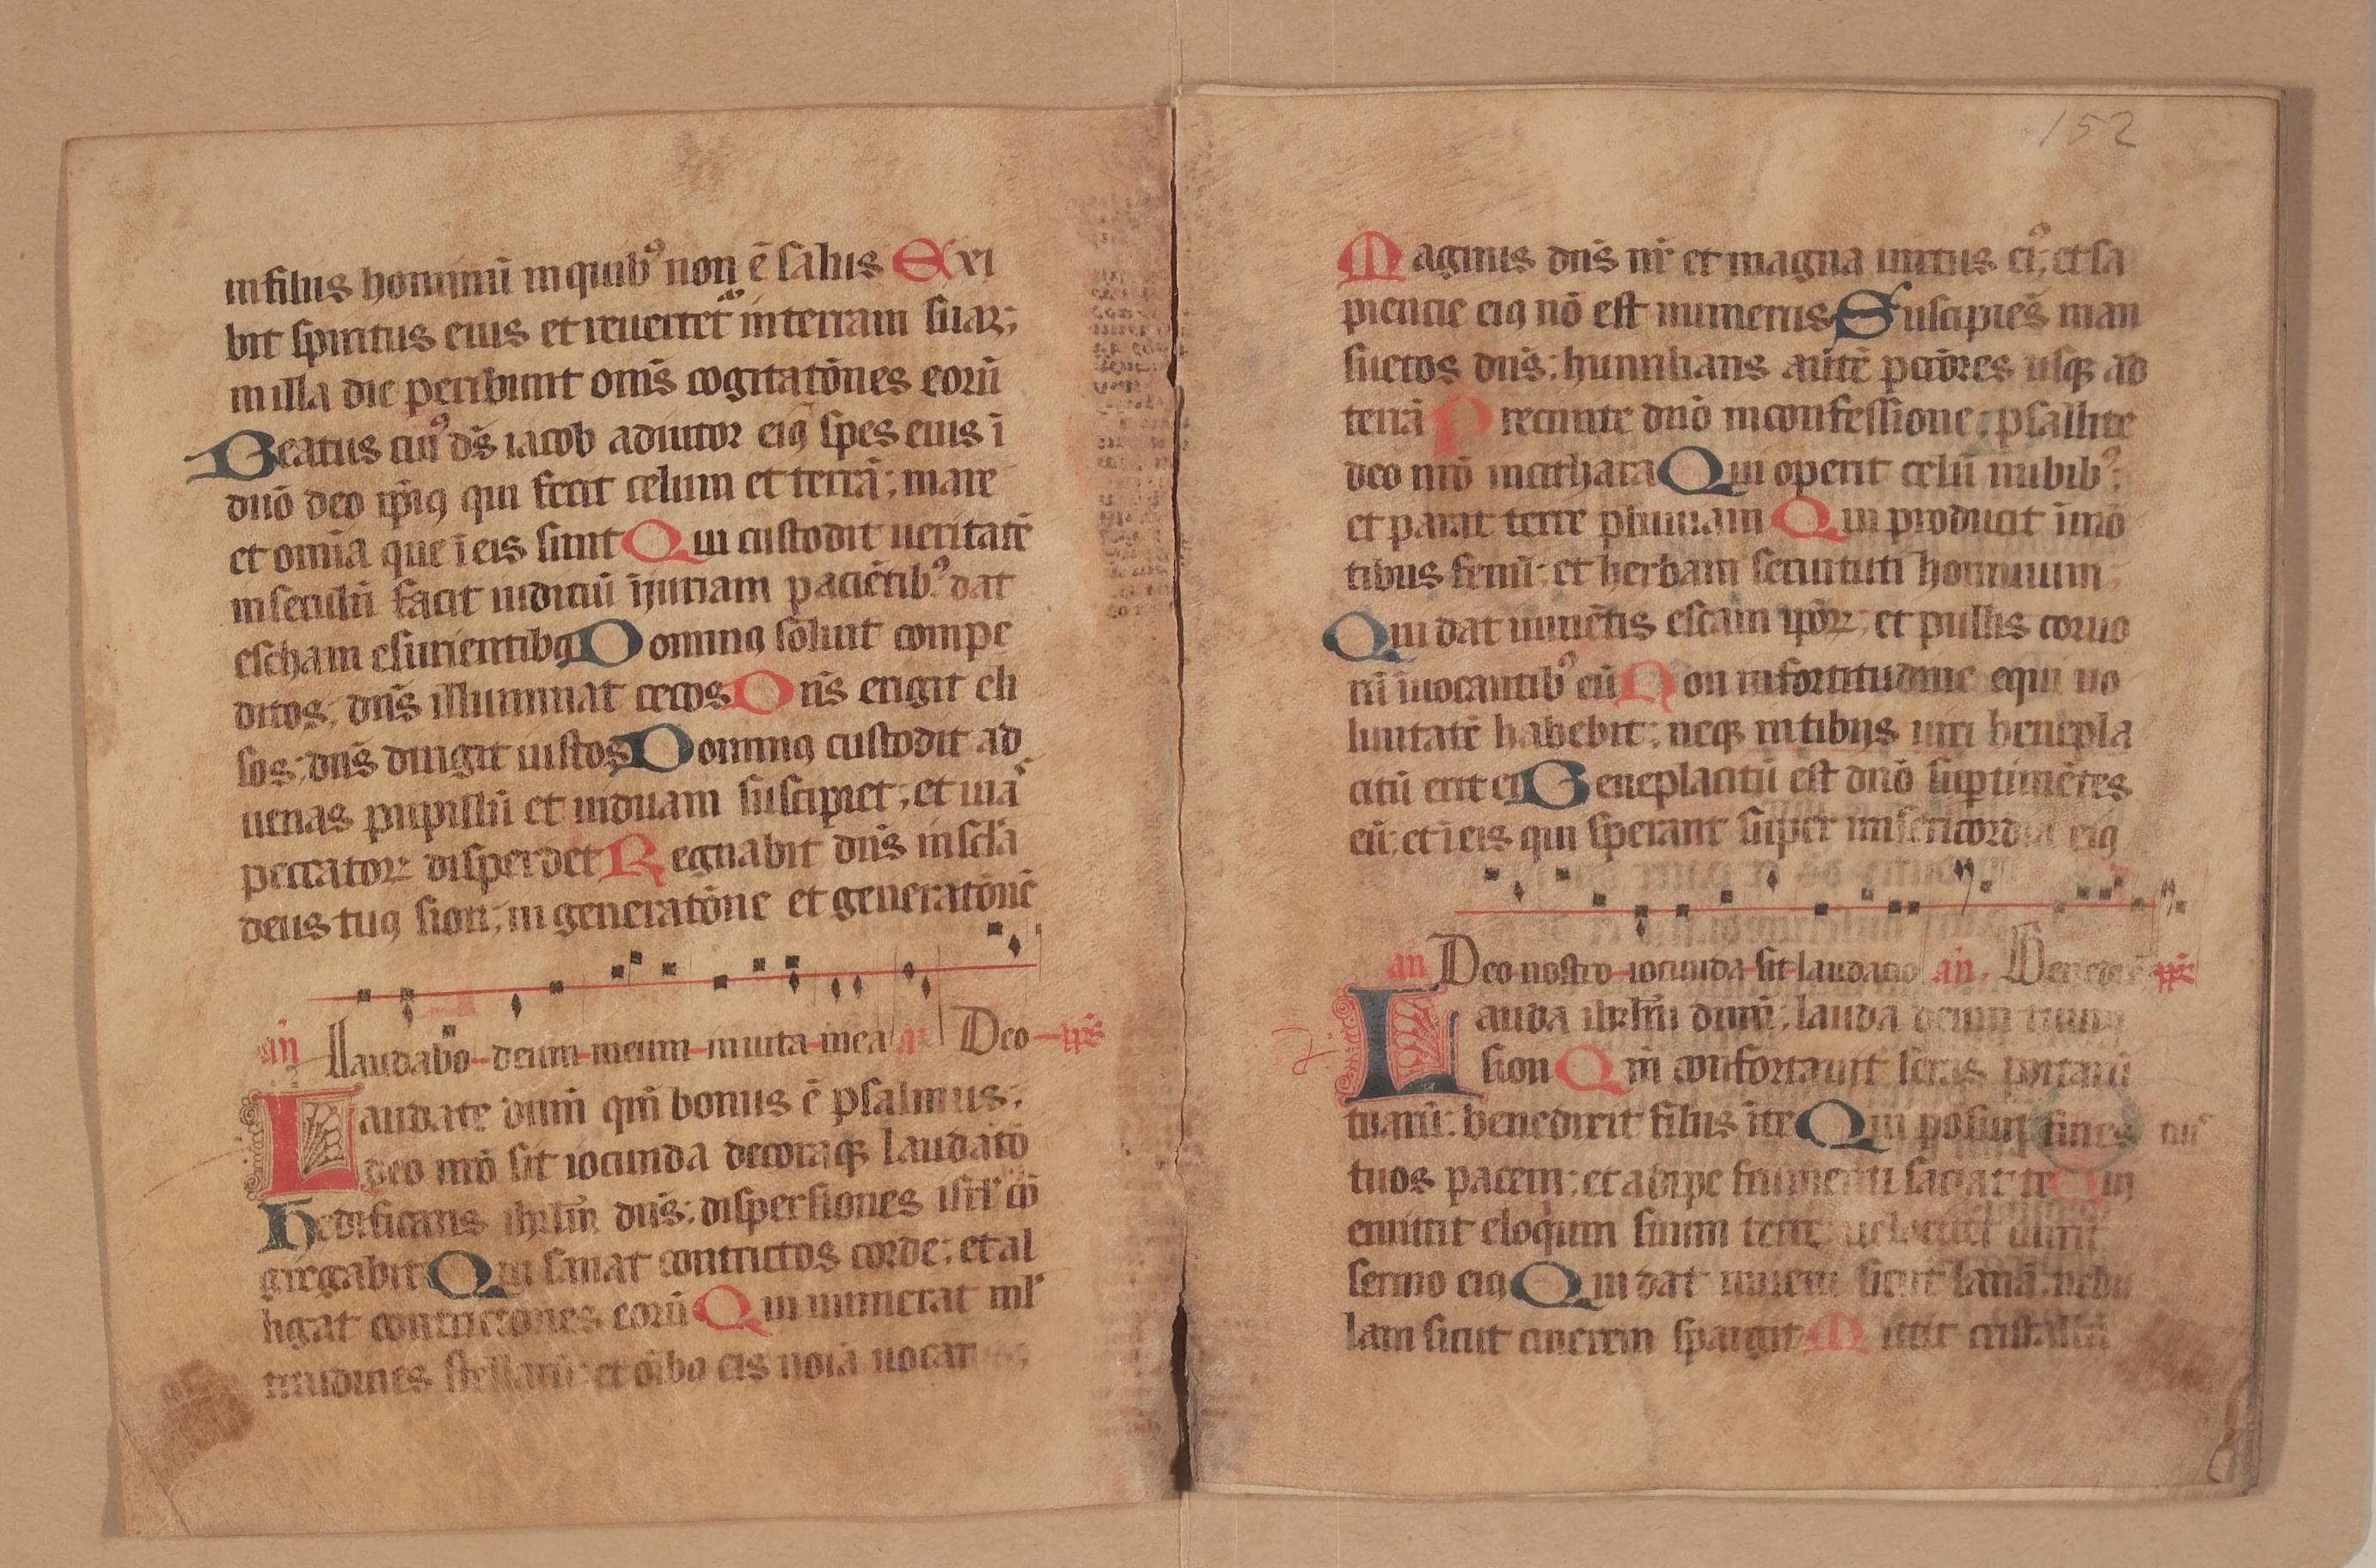 infilus hominū inquibꝰ non ē salus Exi
bit spiritus eius et reuertet᷑ interram suaꝫ;
inilla die peribunt om̄s cogitatōnes eorū
Beatus cuiꝰ ds̄ iacob adiutor eiꝰ spes eius ī
dn̄o deo ip̄iꝰ qui fecit celum et terrā; mare
et omīa que ī eis sunt Qui custodit ueritatē
inseculū facit iudiciū īiuriam paciētibꝰ dat
escham esurientibꝰ Dominꝰ soluit compe
ditos; dn̄s illuminat cecos Dn̄s erigit eli
sos; dn̄s dirigit iustos Dominꝰ custodit ad
uenas pupillū et uiduam suscipiet; et uiā
peccatoꝝ disperdet Regnabit dn̄s insc̄la
deus tuꝰ sion; in generatōne et generatōnē
an̄ Laudabo deum meum inuita mea Deo ps̄
Laudate dn̄m qm̄ bonus ē psalmus;
deo nr̄o sit iocunda decoraqꝫ laudatō
Hedificans ihrlm̄ dn̄s; dispersiones isrl̄ cō
gregabit Qui sanat contrictos corde; et al
ligat contrictones eorū Qui numerat ml̄
titudines stellarū; et oībꝰ eis noīa uocat
152
Magnus dn̄s nr̄ et magna uirtus eiꝰ; et sa
piencie eiꝰ nō est numerus Suscipiēs man
suetos dn̄s; humilians autē pctōres usqꝫ ad
terrā Precinite dn̄o inconfessione; psallite
deo nr̄o incithara Qui operit celū nubibꝰ;
et parat terre pluuiam Qui producit īmō
tibus fenū; et herbam seruituti hominum
Qui dat iumētis escam ip̄oꝝ; et pullis coruo
rū īuocantibꝰ eū Non infortitudine equi uo
luntatē habebit; neqꝫ intibijs uiri benepla
citū erit ei Beneplacitū est dn̄o suꝑ timētes
eū; et ī eis qui sperant super misericordia eiꝰ
an̄ Deo nostro iocunda sit laudatio an̄. ps̄
Lauda ihrlm̄ dn̄m; lauda deum tuum
sion Qm̄ confortauit seras portarū
tuarū; benedixit filiis ī te Qui posuit fines
tuos pacem; et adipe frumenti saciat te Qui
emittit eloqium suum terre; uelociter currit
sermo eiꝰ Qui dat niuem sicut lanā; nebu
lam sicut cinerem spargit Mittit cristallū